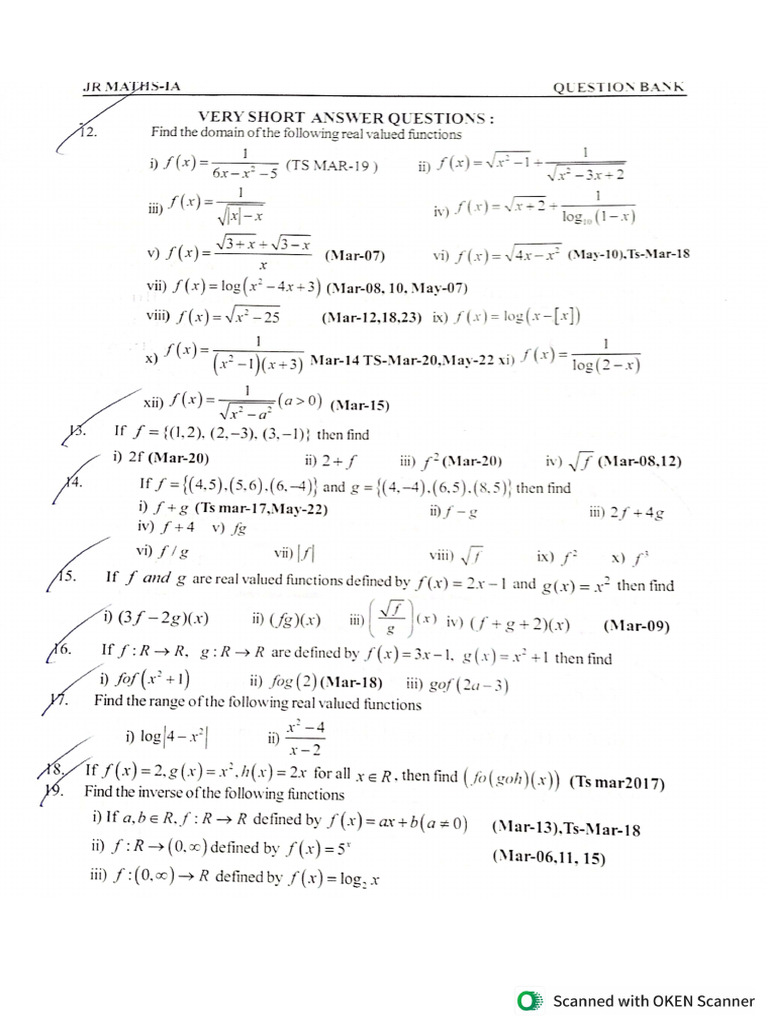 JR MATHS-IA QUESTION BANK
VERY SHORT ANSWER QUESTIONS :
12. Find the domain of the following real valued functions
i) f(x) = 1/(6x − x² − 5) (TS MAR-19 ) ii) f(x) = √(x² − 1) + 1/√(x² − 3x + 2)
iii) f(x) = 1/√(|x| − x) iv) f(x) = √(x + 2) + 1/log₁₀(1 − x)
v) f(x) = (√(3 + x) + √(3 − x))/x (Mar-07) vi) f(x) = √(4x − x²) (May-10),Ts-Mar-18
vii) f(x) = log(x² − 4x + 3) (Mar-08, 10, May-07)
viii) f(x) = √(x² − 25) (Mar-12,18,23) ix) f(x) = log(x − [x])
x) f(x) = 1/((x² − 1)(x + 3)) Mar-14 TS-Mar-20,May-22 xi) f(x) = 1/log(2 − x)
xii) f(x) = 1/√(x² − a²) (a > 0) (Mar-15)
13. If f = {(1,2), (2,−3), (3,−1)} then find
i) 2f (Mar-20) ii) 2 + f iii) f² (Mar-20) iv) √f (Mar-08,12)
14. If f = {(4,5),(5,6),(6,−4)} and g = {(4,−4),(6,5),(8,5)} then find
i) f + g (Ts mar-17,May-22) ii) f − g iii) 2f + 4g
iv) f + 4 v) fg
vi) f / g vii) |f| viii) √f ix) f² x) f³
15. If f and g are real valued functions defined by f(x) = 2x − 1 and g(x) = x² then find
i) (3f − 2g)(x) ii) (fg)(x) iii) (√f/g)(x) iv) (f + g + 2)(x) (Mar-09)
16. If f : R → R, g : R → R are defined by f(x) = 3x − 1, g(x) = x² + 1 then find
i) fof(x² + 1) ii) fog(2) (Mar-18) iii) gof(2a − 3)
17. Find the range of the following real valued functions
i) log|4 − x²| ii) (x² − 4)/(x − 2)
18. If f(x) = 2, g(x) = x², h(x) = 2x for all x ∈ R, then find (fo(goh)(x)) (Ts mar2017)
19. Find the inverse of the following functions
i) If a,b ∈ R, f : R → R defined by f(x) = ax + b(a ≠ 0) (Mar-13),Ts-Mar-18
ii) f : R → (0,∞) defined by f(x) = 5ˣ (Mar-06,11, 15)
iii) f : (0,∞) → R defined by f(x) = log₂ x
Scanned with OKEN Scanner